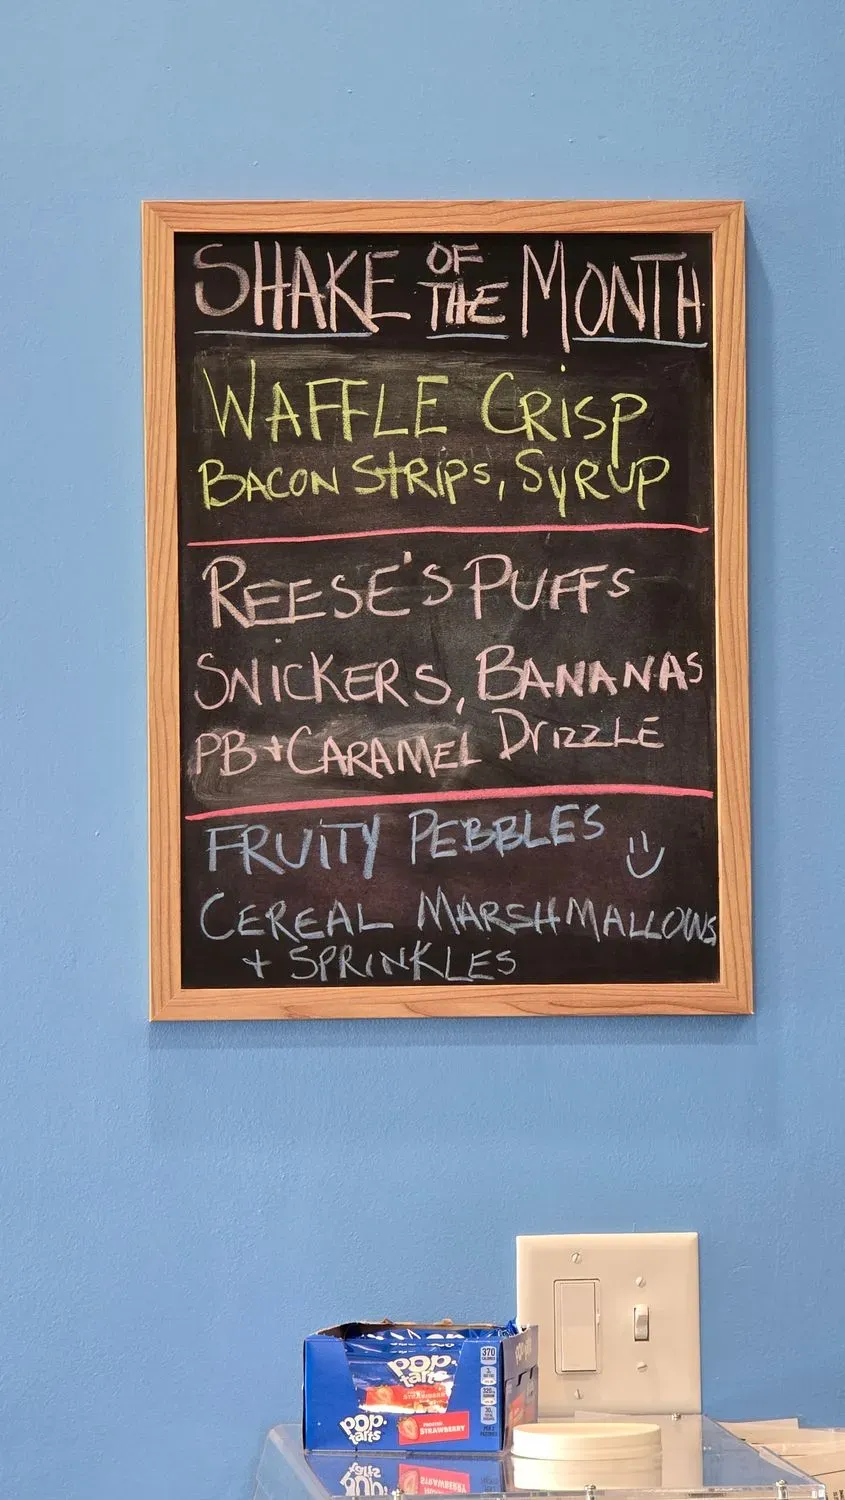 SHAKE OF THE MONTH
WAFFLE CRISP
BACON STRIPS, SYRUP
REESE'S PUFFS
SNICKERS, BANANAS
PB + CARAMEL DRIZZLE
FRUITY PEBBLES
CEREAL MARSHMALLOWS
+ SPRINKLES
POP·tarts
STRAWBERRY
370
CALORIES
320
30
POP·tarts
FROSTED
STRAWBERRY
STRAWBERRY